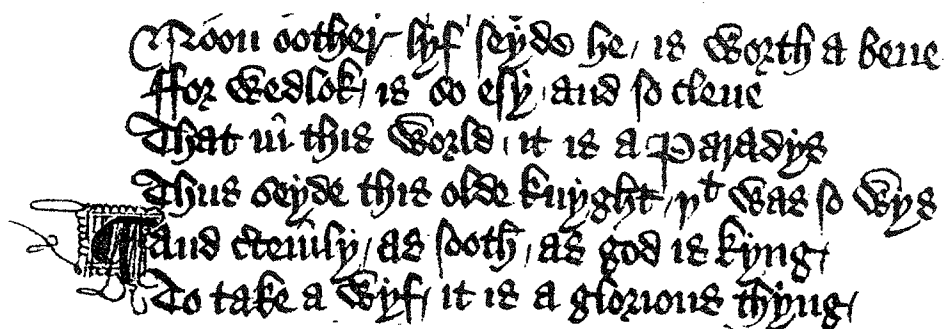 Noon oother lyf seyde he / is worth a bene
ffor wedlok / is so esy / and so clene
That in this world / it is a Paradys
Thus seyde this olde knyght / þt was so wys
And certeinly / as sooth / as god is kyng /
To take a wyf / it is a glorious thyng /